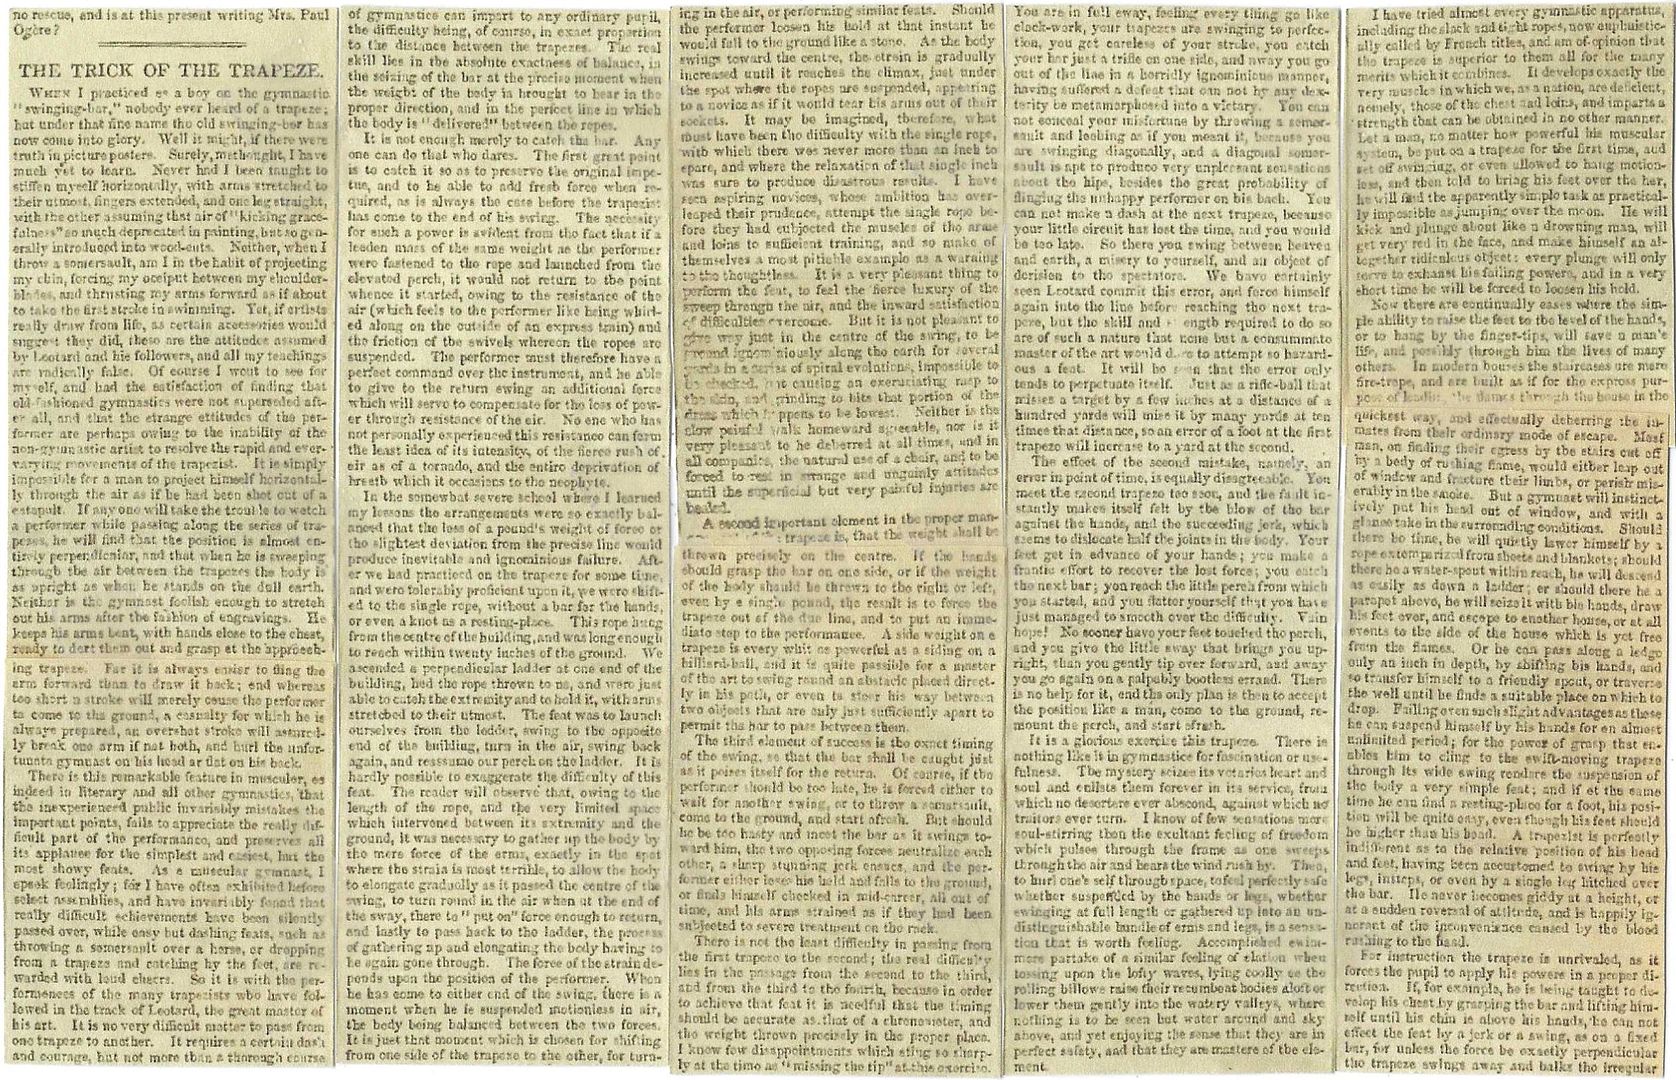 no rescue, and is at this present writing Mrs. Paul
Ogere?
THE TRICK OF THE TRAPEZE.
WHEN I practiced as a boy on the gymnastic
"swinging-bar," nobody ever heard of a trapeze;
but under that fine name the old swinging-bar has
now come into glory. Well it might, if there were
truth in picture posters. Surely, methought, I have
much yet to learn. Never had I been taught to
stiffen myself horizontally, with arms stretched to
their utmost, fingers extended, and one leg straight,
with the other assuming that air of "kicking grace-
fulness" so much deprecated in painting, but so gen-
erally introduced into wood-cuts. Neither, when I
throw a somersault, am I in the habit of projecting
my chin, forcing my occiput between my shoulder-
blades, and thrusting my arms forward as if about
to take the first stroke in swimming. Yet, if artists
really draw from life, as certain accessories would
suggest they did, these are the attitudes assumed
by Leotard and his followers, and all my teachings
are radically false. Of course I went to see for
myself, and had the satisfaction of finding that
old-fashioned gymnastics were not superseded aft-
er all, and that the strange attitudes of the per-
former are perhaps owing to the inability of the
non-gymnastic artist to resolve the rapid and ever-
varying movements of the trapezist. It is simply
impossible for a man to project himself horizontal-
ly through the air as if he had been shot out of a
catapult. If any one will take the trouble to watch
a performer while passing along the series of tra-
pezes, he will find that the position is almost en-
tirely perpendicular, and that when he is sweeping
through the air between the trapezes the body is
as upright as when he stands on the dull earth.
Neither is the gymnast foolish enough to stretch
out his arms after the fashion of engravings. He
keeps his arms bent, with hands close to the chest,
ready to dart them out and grasp at the approach-
ing trapeze. For it is always easier to fling the
arm forward than to draw it back; and whereas
too short a stroke will merely cause the performer
to come to the ground, a casualty for which he is
always prepared, an overshot stroke will assured-
ly break one arm if not both, and hurl the unfor-
tunate gymnast on his head or flat on his back.
There is this remarkable feature in muscular, as
indeed in literary and all other gymnastics, that
the inexperienced public invariably mistakes the
important points, fails to appreciate the really dif-
ficult part of the performance, and preserves all
its applause for the simplest and easiest, but the
most showy feats. As a muscular gymnast, I
speak feelingly; for I have often exhibited before
select assemblies, and have invariably found that
really difficult achievements have been silently
passed over, while easy but dashing feats, such as
throwing a somersault over a horse, or dropping
from a trapeze and catching by the feet, are re-
warded with loud cheers. So it is with the per-
formances of the many trapezists who have fol-
lowed in the track of Leotard, the great master of
his art. It is no very difficult matter to pass from
one trapeze to another. It requires a certain dash
and courage, but not more than a thorough course
of gymnastics can impart to any ordinary pupil,
the difficulty being, of course, in exact proportion
to the distance between the trapezes. The real
skill lies in the absolute exactness of balance, in
the seizing of the bar at the precise moment when
the weight of the body is brought to bear in the
proper direction, and in the perfect line in which
the body is "delivered" between the ropes.
It is not enough merely to catch the bar. Any
one can do that who dares. The first great point
is to catch it so as to preserve the original impe-
tus, and to be able to add fresh force when re-
quired, as is always the case before the trapezist
has come to the end of his swing. The necessity
for such a power is evident from the fact that if a
leaden mass of the same weight as the performer
were fastened to the rope and launched from the
elevated perch, it would not return to the point
whence it started, owing to the resistance of the
air (which feels to the performer like being whirl-
ed along on the outside of an express train) and
the friction of the swivels whereon the ropes are
suspended. The performer must therefore have a
perfect command over the instrument, and be able
to give to the return swing an additional force
which will serve to compensate for the loss of pow-
er through resistance of the air. No one who has
not personally experienced this resistance can form
the least idea of its intensity, of the fierce rush of
air as of a tornado, and the entire deprivation of
breath which it occasions to the neophyte.
In the somewhat severe school where I learned
my lessons the arrangements were so exactly bal-
anced that the loss of a pound's weight of force or
the slightest deviation from the precise line would
produce inevitable and ignominious failure. Aft-
er we had practiced on the trapeze for some time,
and were tolerably proficient upon it, we were shift-
ed to the single rope, without a bar for the hands,
or even a knot as a resting-place. This rope hung
from the centre of the building, and was long enough
to reach within twenty inches of the ground. We
ascended a perpendicular ladder at one end of the
building, had the rope thrown to us, and were just
able to catch the extremity and to hold it, with arms
stretched to their utmost. The feat was to launch
ourselves from the ladder, swing to the opposite
end of the building, turn in the air, swing back
again, and reassume our perch on the ladder. It is
hardly possible to exaggerate the difficulty of this
feat. The reader will observe that, owing to the
length of the rope, and the very limited space
which intervened between its extremity and the
ground, it was necessary to gather up the body by
the mere force of the arms, exactly in the spot
where the strain is most terrible, to allow the body
to elongate gradually as it passed the centre of the
swing, to turn round in the air when at the end of
the sway, there to "put on" force enough to return,
and lastly to pass back to the ladder, the process
of gathering up and elongating the body having to
be again gone through. The force of the strain de-
pends upon the position of the performer. When
he has come to either end of the swing, there is a
moment when he is suspended motionless in air,
the body being balanced between the two forces.
It is just that moment which is chosen for shifting
from one side of the trapeze to the other, for turn-
ing in the air, or performing similar feats. Should
the performer loosen his hold at that instant he
would fall to the ground like a stone. As the body
swings toward the centre, the strain is gradually
increased until it reaches the climax, just under
the spot where the ropes are suspended, appearing
to a novice as if it would tear his arms out of their
sockets. It may be imagined, therefore, what
must have been the difficulty with the single rope,
with which there was never more than an inch to
spare, and where the relaxation of that single inch
was sure to produce disastrous results. I have
seen aspiring novices, whose ambition has over-
leaped their prudence, attempt the single rope be-
fore they had subjected the muscles of the arms
and loins to sufficient training, and so make of
themselves a most pitiable example as a warning
to the thoughtless. It is a very pleasant thing to
perform the feat, to feel the fierce luxury of the
sweep through the air, and the inward satisfaction
of difficulties overcome. But it is not pleasant to
give way just in the centre of the swing, to be
ground ignominiously along the earth for several
yards in a series of spiral evolutions, impossible to
be checked, but causing an excruciating rasp to
the skin, and grinding to bits that portion of the
dress which happens to be lowest. Neither is the
slow painful walk homeward agreeable, nor is it
very pleasant to be deberred at all times, and in
all companies, the natural use of a chair, and to be
forced to rest in strange and ungainly attitudes
until the superficial but very painful injuries are
healed.
A second important element in the proper man-
trapeze is, that the weight shall be
thrown precisely on the centre. If the hands
should grasp the bar on one side, or if the weight
of the body should be thrown to the right or left,
even by a single pound, the result is to force the
trapeze out of the due line, and to put an imme-
diate stop to the performance. A side weight on a
trapeze is every whit as powerful as a siding on a
billiard-ball, and it is quite possible for a master
of the art to swing round an obstacle placed direct-
ly in his path, or even to steer his way between
two objects that are only just sufficiently apart to
permit the bar to pass between them.
The third element of success is the exact timing
of the swing, so that the bar shall be caught just
as it poises itself for the return. Of course, if the
performer should be too late, he is forced either to
wait for another swing, or to throw a somersault,
come to the ground, and start afresh. But should
he be too hasty and meet the bar as it swings to-
ward him, the two opposing forces neutralize each
other, a sharp stunning jerk ensues, and the per-
former either loses his hold and falls to the ground,
or finds himself checked in mid-career, all out of
time, and his arms strained as if they had been
subjected to severe treatment on the rack.
There is not the least difficulty in passing from
the first trapeze to the second; the real difficulty
lies in the passage from the second to the third,
and from the third to the fourth, because in order
to achieve that feat it is needful that the timing
should be accurate as that of a chronometer, and
the weight thrown precisely in the proper place.
I know few disappointments which sting so sharp-
ly at the time as "missing the tip" at this exercise.
You are in full sway, feeling every thing go like
clock-work, your trapezes are swinging to perfec-
tion, you get careless of your stroke, you catch
your bar just a trifle on one side, and away you go
out of the line in a horridly ignominious manner,
having suffered a defeat that can not by any dex-
terity be metamorphosed into a victory. You can
not conceal your misfortune by throwing a somer-
sault and looking as if you meant it, because you
are swinging diagonally, and a diagonal somer-
sault is apt to produce very unpleasant sensations
about the hips, besides the great probability of
flinging the unhappy performer on his back. You
can not make a dash at the next trapeze, because
your little circuit has lost the time, and you would
be too late. So there you swing between heaven
and earth, a misery to yourself, and an object of
derision to the spectators. We have certainly
seen Leotard commit this error, and force himself
again into the line before reaching the next tra-
peze, but the skill and strength required to do so
are of such a nature that none but a consummate
master of the art would dare to attempt so hazard-
ous a feat. It will be seen that the error only
tends to perpetuate itself. Just as a rifle-ball that
misses a target by a few inches at a distance of a
hundred yards will miss it by many yards at ten
times that distance, so an error of a foot at the first
trapeze will increase to a yard at the second.
The effect of the second mistake, namely, an
error in point of time, is equally disagreeable. You
meet the second trapeze too soon, and the fault in-
stantly makes itself felt by the blow of the bar
against the hands, and the succeeding jerk, which
seems to dislocate half the joints in the body. Your
feet get in advance of your hands; you make a
frantic effort to recover the lost force; you catch
the next bar; you reach the little perch from which
you started, and you flatter yourself that you have
just managed to smooth over the difficulty. Vain
hope! No sooner have your feet touched the perch,
and you give the little sway that brings you up-
right, than you gently tip over forward, and away
you go again on a palpably bootless errand. There
is no help for it, and the only plan is then to accept
the position like a man, come to the ground, re-
mount the perch, and start afresh.
It is a glorious exercise this trapeze. There is
nothing like it in gymnastics for fascination or use-
fulness. The mystery seizes its votaries heart and
soul and enlists them forever in its service, from
which no deserters ever abscond, against which no
traitors ever turn. I know of few sensations more
soul-stirring than the exultant feeling of freedom
which pulses through the frame as one sweeps
through the air and hears the wind rush by. Then,
to hurl one's self through space, to feel perfectly safe
whether suspended by the hands or legs, whether
swinging at full length or gathered up into an un-
distinguishable bundle of arms and legs, is a sensa-
tion that is worth feeling. Accomplished swim-
mers partake of a similar feeling of elation when
tossing upon the lofty waves, lying coolly as the
rolling billows raise their recumbent bodies aloft or
lower them gently into the watery valleys, where
nothing is to be seen but water around and sky
above, and yet enjoying the sense that they are in
perfect safety, and that they are masters of the ele-
ment.
I have tried almost every gymnastic apparatus,
including the slack and tight ropes, now euphuistic-
ally called by French titles, and am of opinion that
the trapeze is superior to them all for the many
merits which it combines. It develops exactly the
very muscles in which we, as a nation, are deficient,
namely, those of the chest and loins, and imparts a
strength that can be obtained in no other manner.
Let a man, no matter how powerful his muscular
system, be put on a trapeze for the first time, and
set off swinging, or even allowed to hang motion-
less, and then told to bring his feet over the bar,
he will find the apparently simple task as practical-
ly impossible as jumping over the moon. He will
kick and plunge about like a drowning man, will
get very red in the face, and make himself an al-
together ridiculous object: every plunge will only
serve to exhaust his failing powers, and in a very
short time he will be forced to loosen his hold.
Now there are continually cases where the sim-
ple ability to raise the feet to the level of the hands,
or to hang by the finger-tips, will save a man's
life, and possibly through him the lives of many
others. In modern houses the staircases are mere
fire-traps, and are built as if for the express pur-
pose of leading the flames through the house in the
quickest way, and effectually deberring the in-
mates from their ordinary mode of escape. Most
man, on finding their egress by the stairs cut off
by a body of rushing flame, would either leap out
of window and fracture their limbs, or perish mis-
erably in the smoke. But a gymnast will instinct-
ively put his head out of window, and with a
glance take in the surrounding conditions. Should
there be time, he will quietly lower himself by a
rope extemporized from sheets and blankets; should
there be a water-spout within reach, he will descend
as easily as down a ladder; or should there be a
parapet above, he will seize it with his hands, draw
his feet over, and escape to another house, or at all
events to the side of the house which is yet free
from the flames. Or he can pass along a ledge
only an inch in depth, by shifting his hands, and
so transfer himself to a friendly spout, or traverse
the well until he finds a suitable place on which to
drop. Failing even such slight advantages as these
he can suspend himself by his hands for an almost
unlimited period; for the power of grasp that en-
ables him to cling to the swift-moving trapeze
through its wide swing renders the suspension of
the body a very simple feat; and if at the same
time he can find a resting-place for a foot, his posi-
tion will be quite easy, even though his feet should
be higher than his head. A trapezist is perfectly
indifferent as to the relative position of his head
and feet, having been accustomed to swing by his
legs, insteps, or even by a single leg hitched over
the bar. He never becomes giddy at a height, or
at a sudden reversal of attitude, and is happily ig-
norant of the inconvenience caused by the blood
rushing to the head.
For instruction the trapeze is unrivaled, as it
forces the pupil to apply his powers in a proper di-
rection. If, for example, he is being taught to de-
velop his chest by grasping the bar and lifting him-
self until his chin is above his hands, he can not
effect the feat by a jerk or a swing, as on a fixed
bar, for unless the force be exactly perpendicular
the trapeze swings away and balks the irregular